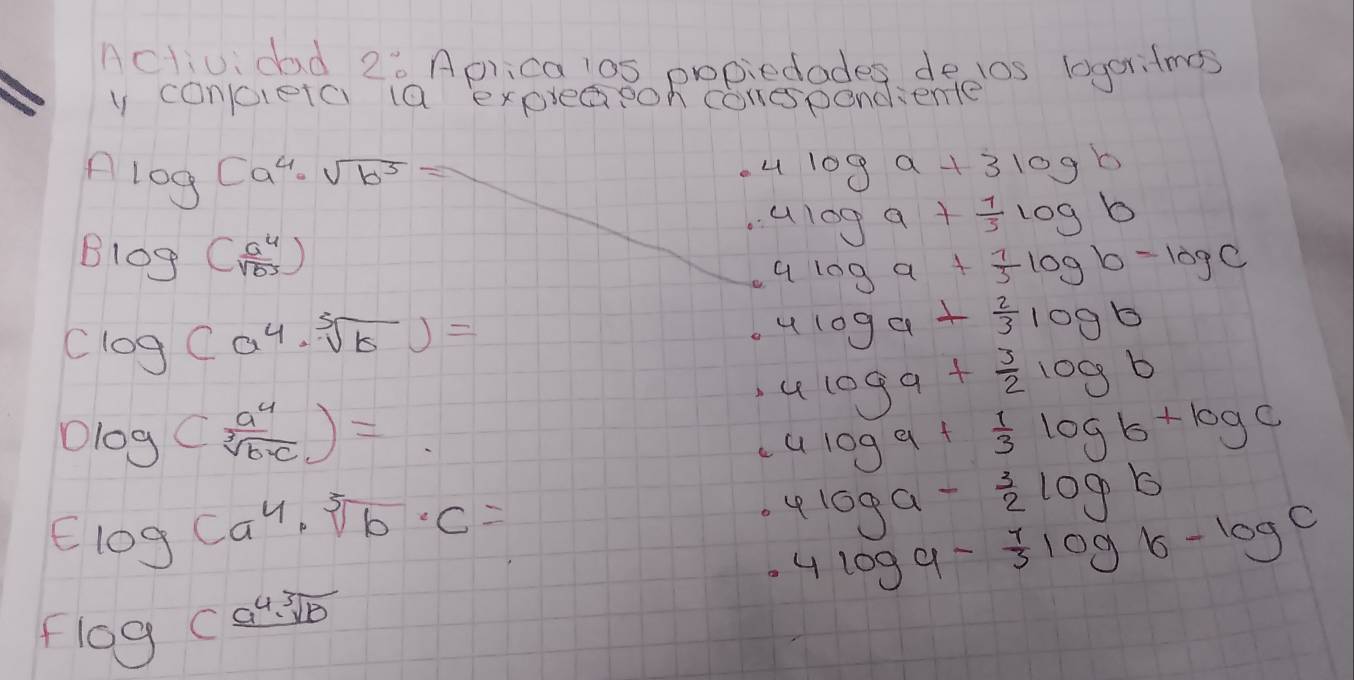 Actividad 2: Aplica los propiedades de los logaritmos
y completa la expresion correspondiente
A log (a⁴ · √b³ =
B log (a⁴/√b³)
C log (a⁴ · ³√b) =
D log (a⁴/³√b·c) = .
E log (a⁴ · ³√b · c =
F log (a⁴·³√b
. 4 log a + 3 log b
. 4 log a + 1/3 log b
. 4 log a + 1/3 log b - log c
. 4 log a + 2/3 log b
. 4 log a + 3/2 log b
. 4 log a + 1/3 log b + log c
. 4 log a - 3/2 log b
. 4 log a - 1/3 log b - log c